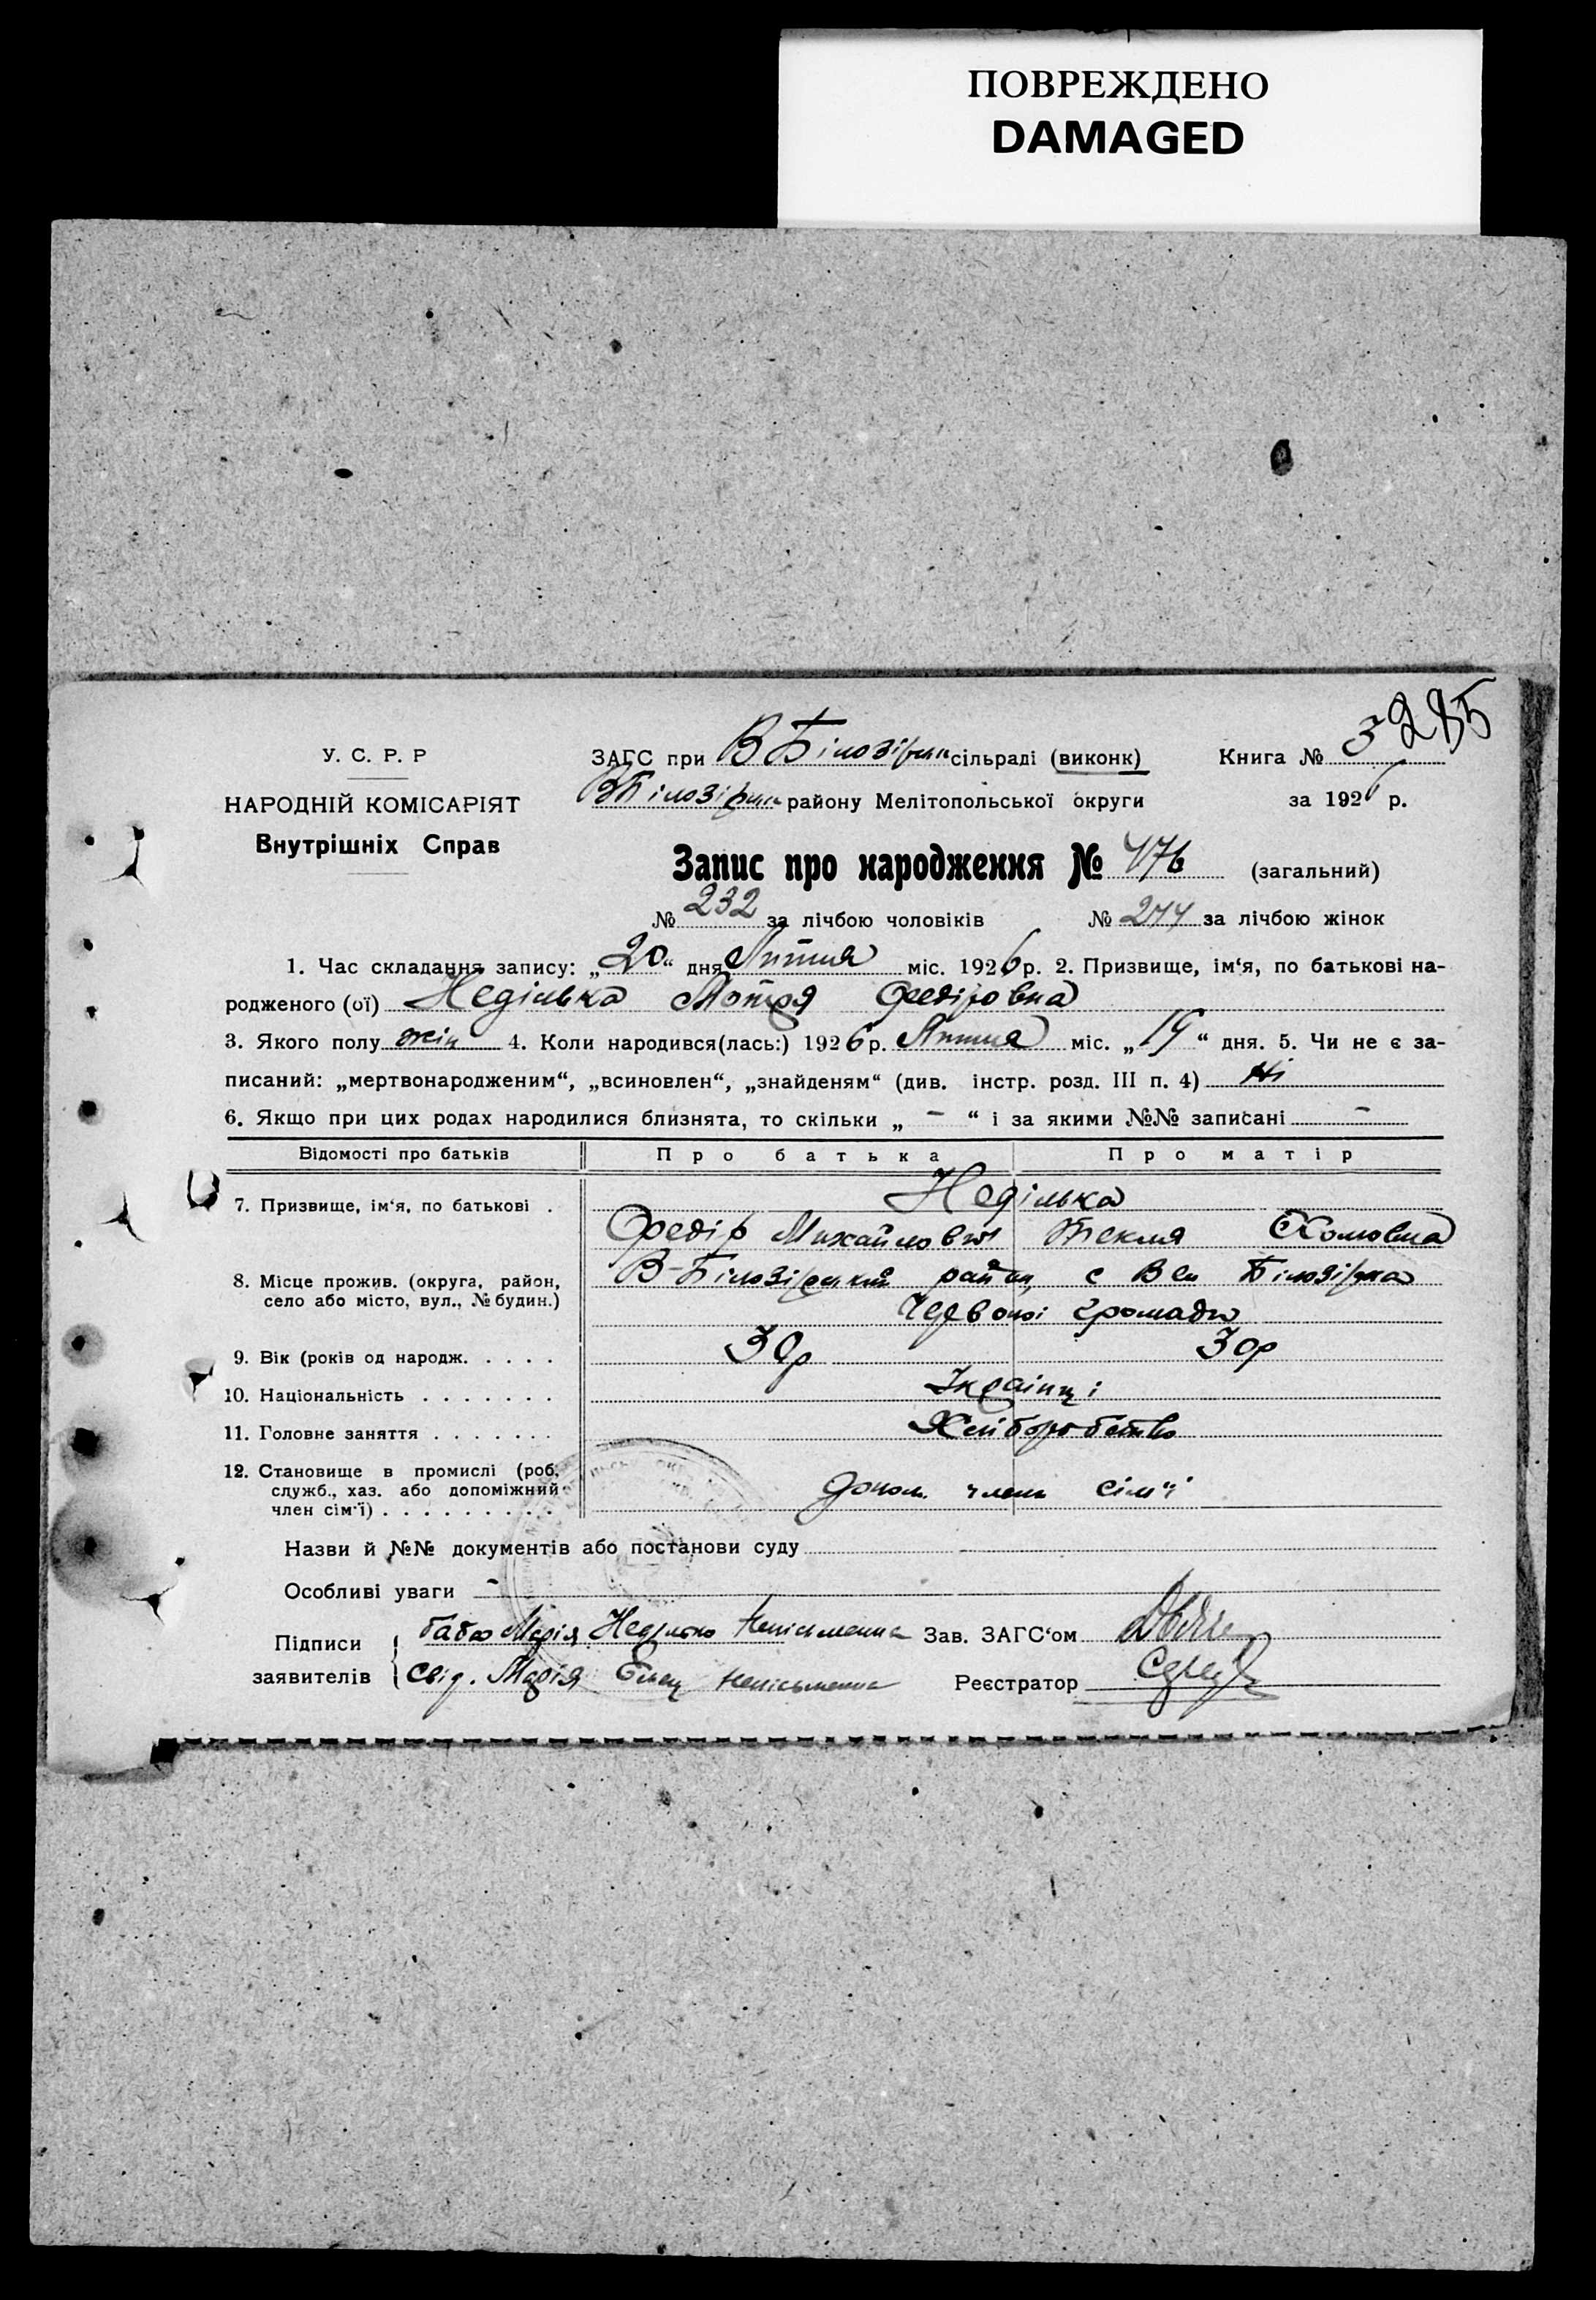 ПОВРЕЖДЕНО
DAMAGED
285
У. С. Р. Р
ЗАГС при В Білозірськ сільраді (виконк)
Книга № 3
НАРОДНІЙ КОМІСАРІЯТ
ВБілозірськ району Мелітопольської округи
за 1926 р.
Внутрішніх Справ
Запис про народження № 476 (загальний)
№ 232 за лічбою чоловіків № 244 за лічбою жінок
1. Час складання запису: „20“ дня Липня міс. 1926 р. 2. Призвище, ім‘я, по батькові на-
родженого (ої) Неділька Мотря Федіровна
3. Якого полу жін 4. Коли народився(лась:) 1926 р. Липня міс. „19“ дня. 5. Чи не є за-
писаний: „мертвонародженим“, „всиновлен“, „знайденям“ (див. інстр. розд. III п. 4) Ні
6. Якщо при цих родах народилися близнята, то скільки „ - “ і за якими №№ записані -
Відомості про батьків Про батька Про матір
7. Призвище, ім‘я, по батькові . Неділька
Федір Михайлович Текля Хомовна
8. Місце прожив. (округа, район, село або місто, вул., № будин.) В-Білозірський район с Вел Білозірка
Червоної громади
9. Вік (років од народж. . . . . 30р 30р
10. Національність . . . . . . . Українці
11. Головне заняття . . . . . . . Хліборобство
12. Становище в промислі (роб.
служб., хаз. або допоміжний
член сім‘ї) . . . . . . . . . допом. член сім'ї
Назви й №№ документів або постанови суду
Особливі уваги -
Підписи
заявителів
баба Марія Неділько Неписьменна Зав. ЗАГС‘ом
свід. Марія неписьменна Реєстратор